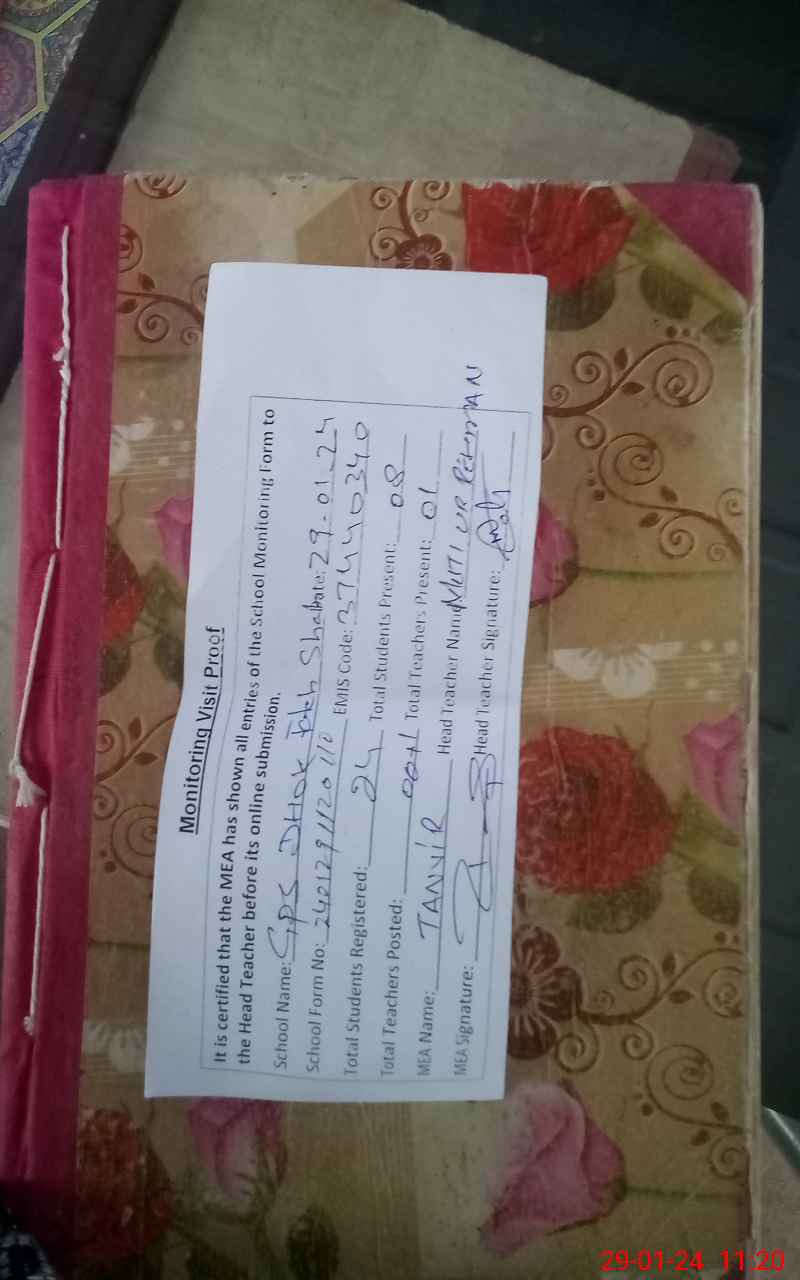 Monitoring Visit Proof
It is certified that the MEA has shown all entries of the School Monitoring Form to
the Head Teacher before its online submission.
School Name: GPS DHOK Fateh Shah Date: 29-01-24
School Form No: 2401291120110 EMIS Code: 37440340
Total Students Registered: 24 Total Students Present: 08
Total Teachers Posted: Total Teachers Present: 01
MEA Name: TANVIR Head Teacher Name: MUTI UR REHMAN
MEA Signature: Head Teacher Signature:
29-01-24 11:20